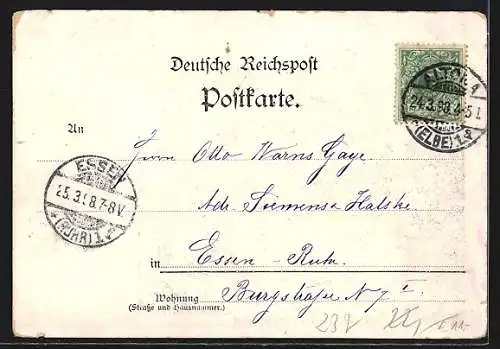 Deutsche Reichspost
Postkarte.
ALTONA
24.3.98.4-5 N.
(ELBE) 1.
An
Herrn Otto Warns Gaye
Adr. Siemens & Halske
ESSEN
25.3.98.7-8V.
(RUHR) 1.
in Essen-Ruhr.
Wohnung Burgstraße N 7 I
(Straße und Hausnummer.)
237